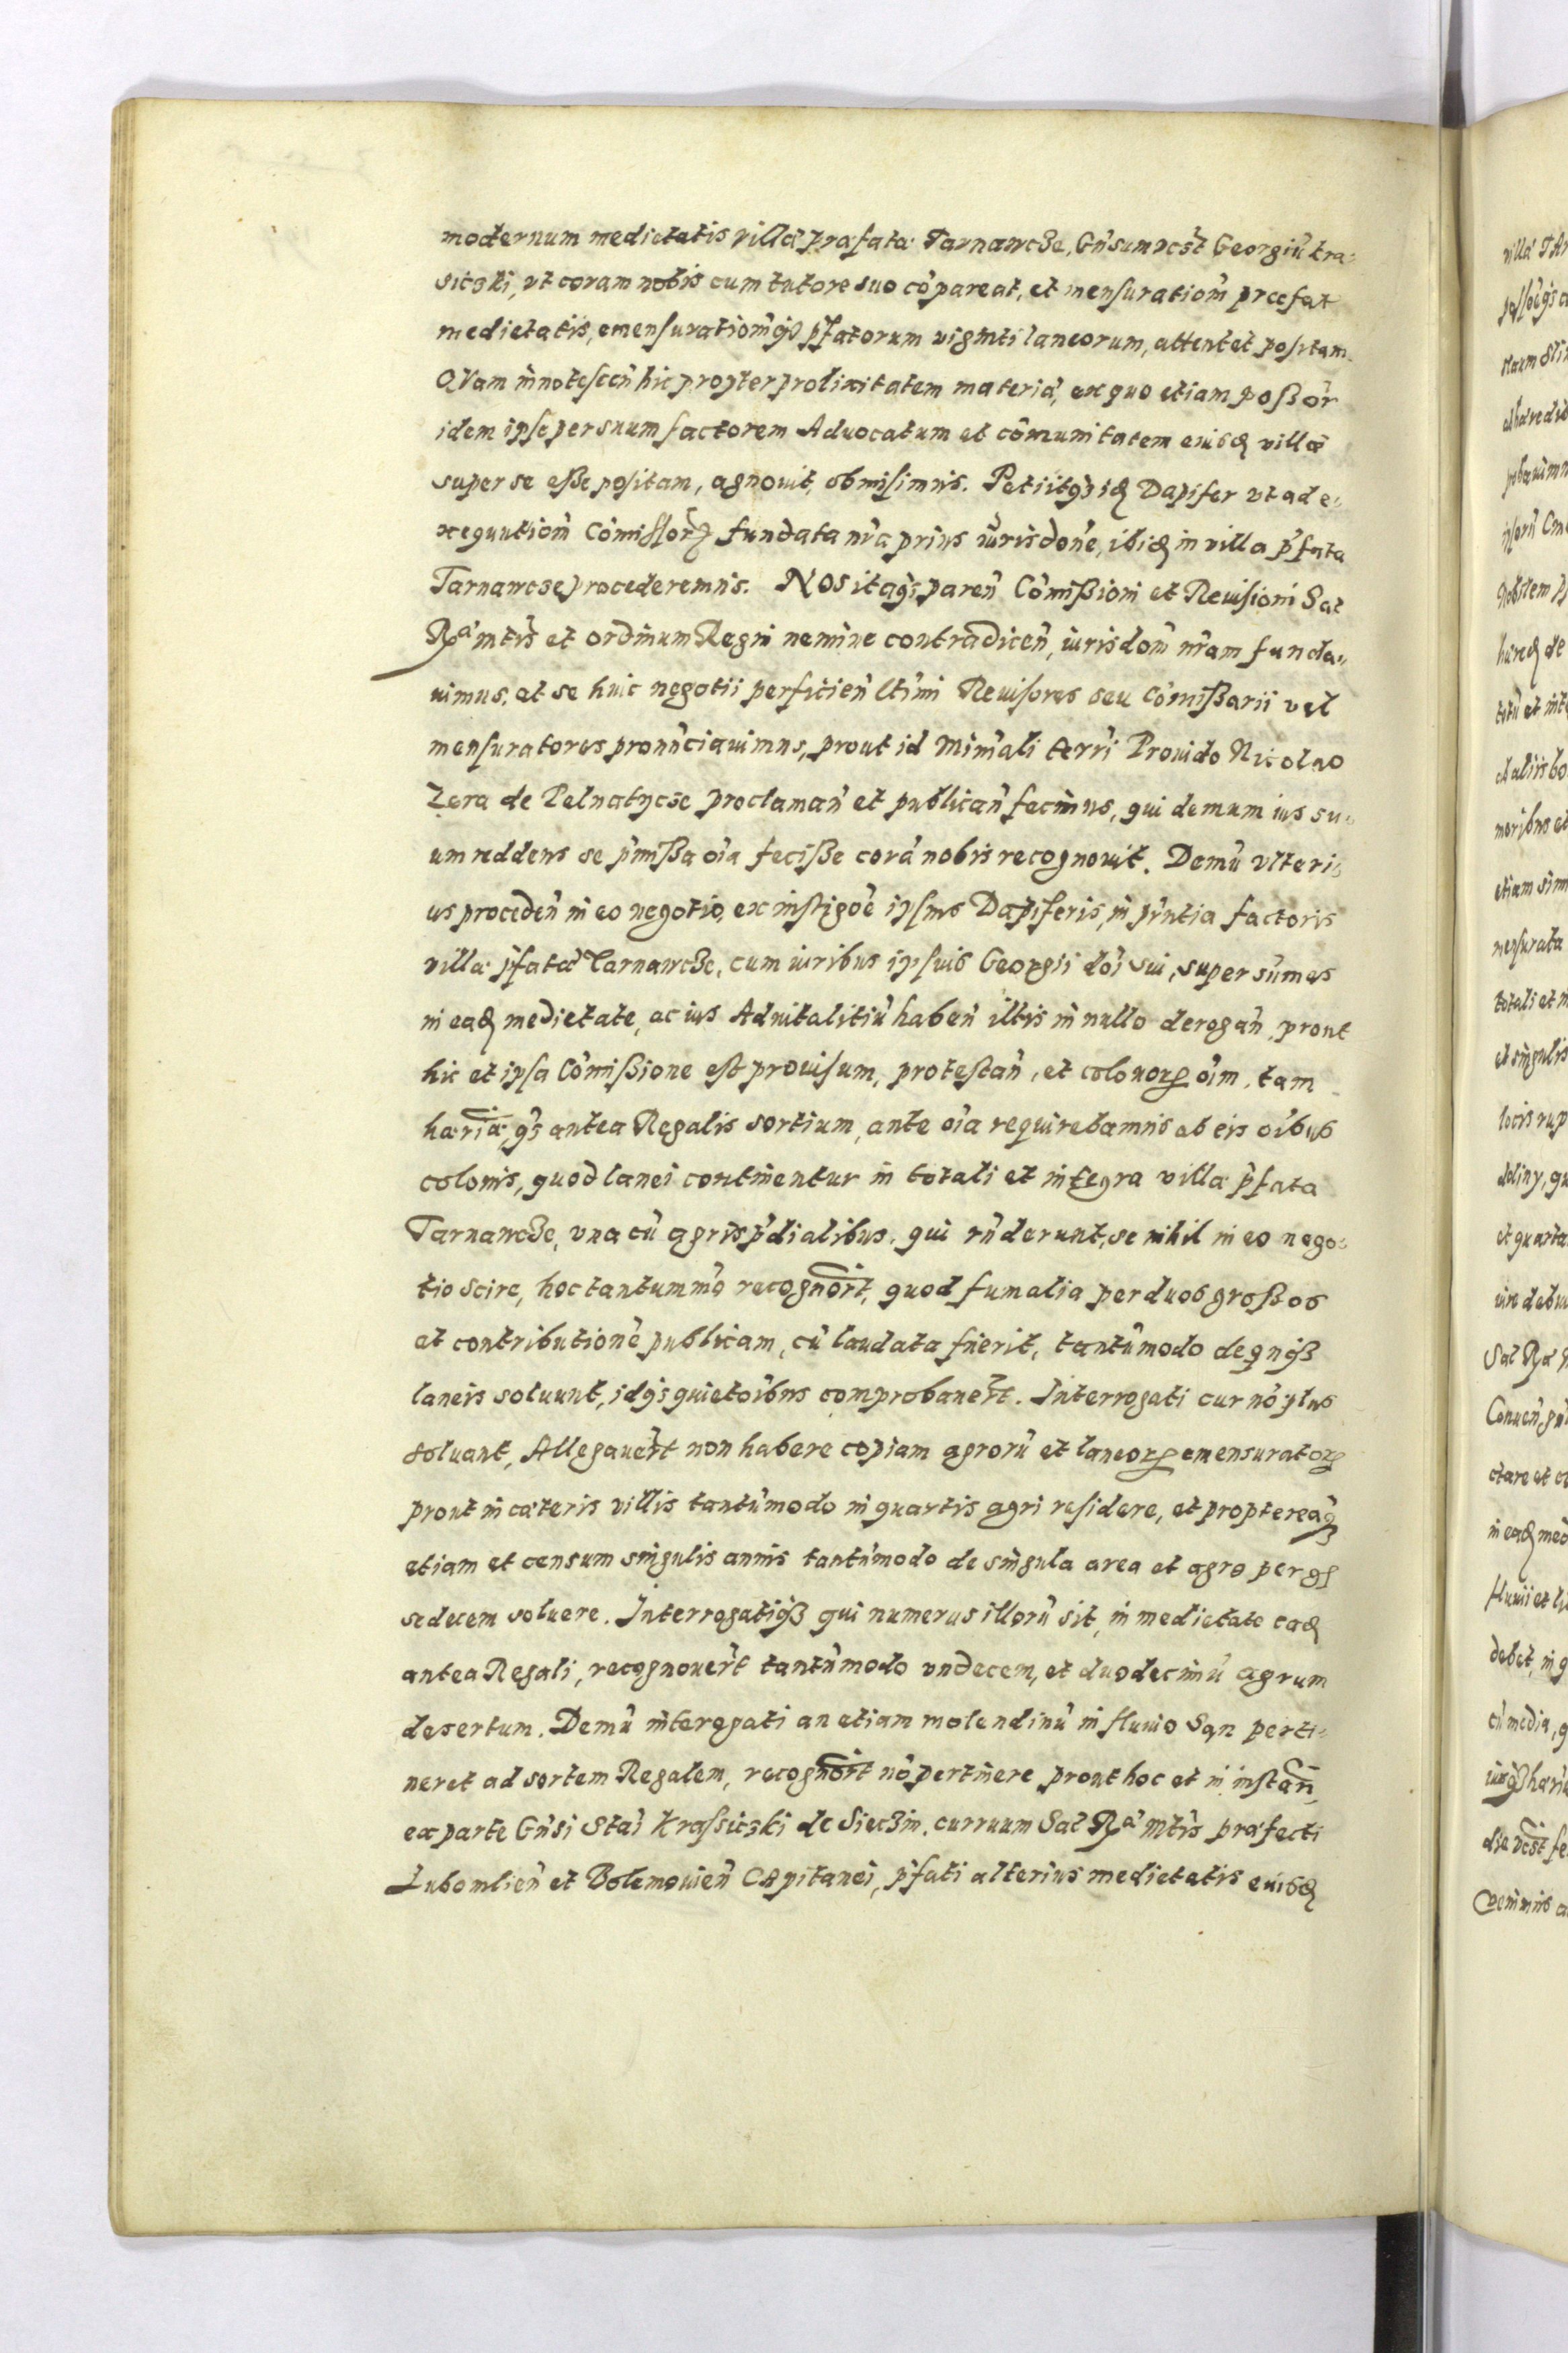 modernum medietatis villæ præfatæ Tarnawcze, Gn̄sum vcst Georgiū kra=
siczki, vt coram nobis cum tutore suo cōpareat, et mensurationē præfat
medietatis, emensurationēq₃ pfatorum viginti laneorum, attentet positam.
QVam innotescen̄ hic propter prolixitatem materiæ, ex quo etiam poßōr
idem ipse per suum factorem Aduocatum et cōmunitatem eiusd villæ
super se eße positam, agnouit, obmisimus. Petiitq₃ id Dapifer vt ad e=
xequutionē Cōmissorꝝ fundata nr̄a prius iurisdōne, ibid in villa p̄fata
Tarnawcze procederemus. NOS itaq₃ paren̄ Cōmißioni et Reuisioni Sac
Rᵃ mtis et ordinum Regni nemine contradicen̄, iurisdōnē nr̄am funda=
uimus, et se huic negotii perficien̄ ltīmi Reuisores seu Cōmißarii vel
mensuratores pronūnciauimus, prout id Minr̄ali terr̄i Prouido Nicolao
Zera de Pelnatycze proclaman̄ et publican̄ fecimus, qui demum ius su=
um reddens se p̄mißa oīa feciße corā nobis recognouit. Demū vlteri=
us proceden̄ in eo negotio, ex instigōe ipsius Dapiferis, in pn̄tia factoris
villæ p̄fatæ Tarnawcze, cum iuribus ipsuis Georgii dōi sui, super sūmas
in ead medietate, ac ius Aduitalitiū haben̄ illis in nullo derogan̄, prout
hic et ipsa Cōmißione est prouisum, protestan̄, et colonorꝝ oīm, tam
hæriæ, q₃ antea Regalis sortium, ante oīa requirebamus ab eis oībus
colonis, quod lanei continentur in totali et integra villa p̄fata
Tarnawcze, vna cū agris p̄dialibus, qui rn̄derunt, se nihil in eo nego=
tio scire, hoc tantummō recognort, quod fumalia per duos großos
et contributionē publicam, cū laudata fuerit, tantūmodo de qnq₃
laneis soluunt, idq₃ quietoībus comprobauert. Interrogati cur nō plus
soluant, Allegauert non habere copiam agrorū et laneorꝝ emensuratorꝝ
prout in cæteris villis tantūmodo in quartis agri residere, et proptereaq₃
etiam et censum singulis annis tantūmodo de singula area et agro per gs
sedecem soluere. Interrogatiq₃ qui numerus illorū sit, in medietate ead
antea Regali, recognouert tantūmodo vndecem, et duodecimū agrum
desertum. Demū interogati an etiam molendinū in fluuio San perti=
neret ad sortem Regalem, recognort nō pertinere prout hoc et in instan̄,
ex parte Gn̄si Stāi Krassiczki de Sieczin, curruum Sac Rᵃ Mtis præfecti
Lubomlien̄ et Bolemouien̄ Capitanei, p̄fati alterius medietatis eiusd